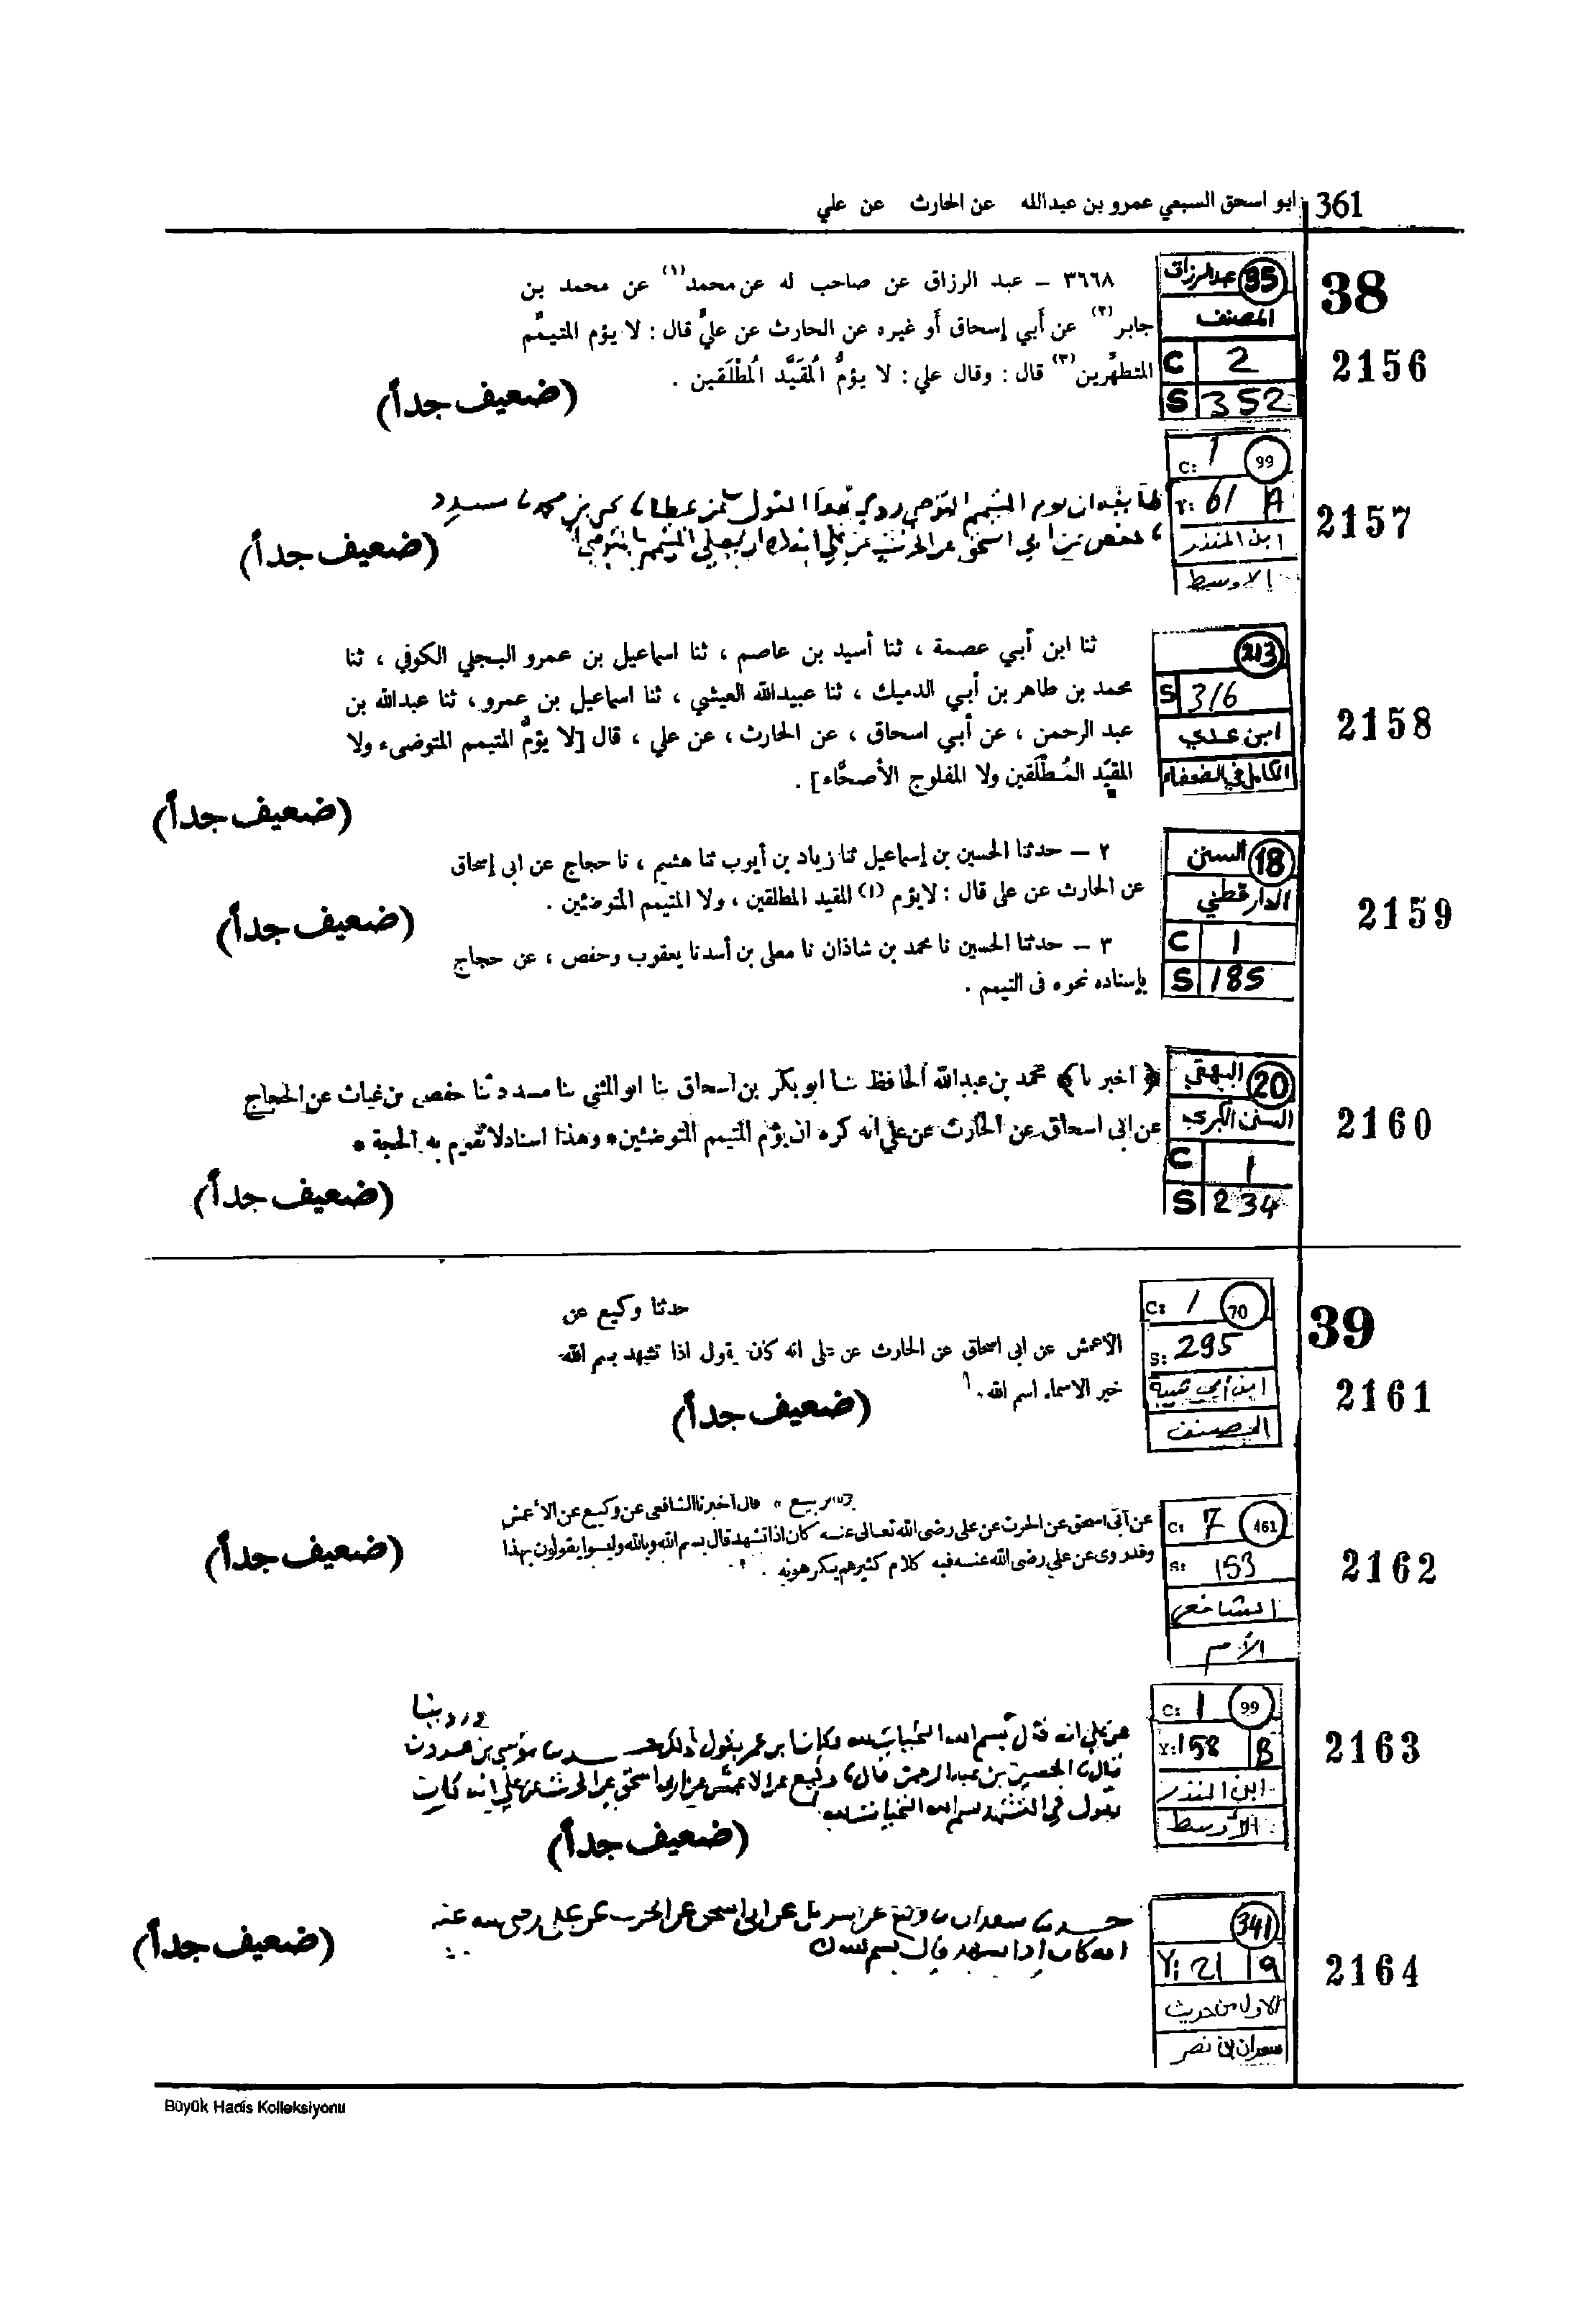 361 ابو اسحق السبعي عمرو بن عبدالله عن الحارث عن علي
38
2156
35 عبدالرزاق
المصنف
C 2
S 352
٣٦٦٨ – عبد الرزاق عن صاحب له عن محمد (١) عن محمد بن
جابر (٢) عن أبي إسحاق أو غيره عن الحارث عن عليٍّ قال : لا يؤم المتيمّم
المتطهّرين (٣) قال : وقال علي : لا يؤمُّ المُقَيَّد المُطْلَقين .
(ضعيف جداً)
2157
C: 1 99
Y: 61 A
ابن المنذر
الاوسط
(ضعيف جداً)
2158
213
S 316
ابن عدي
الكامل في الضعفاء
ثنا ابن أبي عصمة ، ثنا أسيد بن عاصم ، ثنا اسماعيل بن عمرو البجلي الكوفي ، ثنا
محمد بن طاهر بن أبي الدميك ، ثنا عبيدالله العيشي ، ثنا اسماعيل بن عمرو ، ثنا عبدالله بن
عبد الرحمن ، عن أبي اسحاق ، عن الحارث ، عن علي ، قال [لا يؤمُّ المتيمم المتوضىء ولا
المقيّد المُطْلَقين ولا المفلوج الأصحَّاء] .
(ضعيف جداً)
2159
السنن 18
الدارقطني
C 1
S 185
٢ – حدثنا الحسين بن إسماعيل ثنا زياد بن أيوب ثنا هشيم ، نا حجاج عن ابى إسحاق
عن الحارث عن على قال : لايؤم (١) المقيد المطلقين ، ولا المتيمم المتوضئين .
٣ – حدثنا الحسين نا محمد بن شاذان نا معلى بن أسد نا يعقوب وحفص ، عن حجاج
بإسناده نحوه فى التيمم .
(ضعيف جداً)
2160
البيهقي 20
السنن الكبرى
C 1
S 234
﴿ اخبرنا ﴾ محمد بن عبدالله الحافظ ثنا ابو بكر بن اسحاق بنا ابو المثنى بنا مسدد ثنا حفص بن غياث عن الحجاج
عن ابى اسحاق عن الحارث عن علي انه كره ان يؤم المتيمم المتوضئين * وهذا اسناد لا تقوم به الحجة *
(ضعيف جداً)
39
2161
C: 1 70
S: 295
ابن أبي شيبة
المصنف
حدثنا وكيع عن
الأعمش عن ابى اسحاق عن الحارث عن على انه كان يقول اذا تشهد بسم الله
خير الاسماء اسم الله .
(ضعيف جداً)
2162
C: 7 461
S: 153
الشافعي
الأم
ربيع • قال اخبرنا الشافعى عن وكيع عن الأعمش
عن أبى اسحق عن الحرث عن على رضى الله تعالى عنه كان اذا تشهد قال بسم الله وبالله وليسوا يقولون بهذا
وقد روى عن علي رضى الله عنه فيه كلام كثير هم يكرهونه .
(ضعيف جداً)
2163
C: 1 99
Y: 158 B
ابن المنذر
الأوسط
وروينا
عن علي انه قال بسم الله التحيات لله وكان ابن عمر يقول ذلك حدثنا موسى بن هرون
قال الحسين بن عبد الرحمن قال وكيع عن الاعمش عن ابي اسحق عن الحرث عن علي انه كان
يقول في التشهد بسم الله التحيات لله
(ضعيف جداً)
2164
341
Y: 21 9
الاول من حديث
سعدان بن نصر
حدثنا سعدان وكيع عن عن ابي اسحق عن الحرث عن علي رضي الله عنه
انه كان اذا تشهد قال بسم الله
(ضعيف جداً)
Büyük Hadis Kolleksiyonu